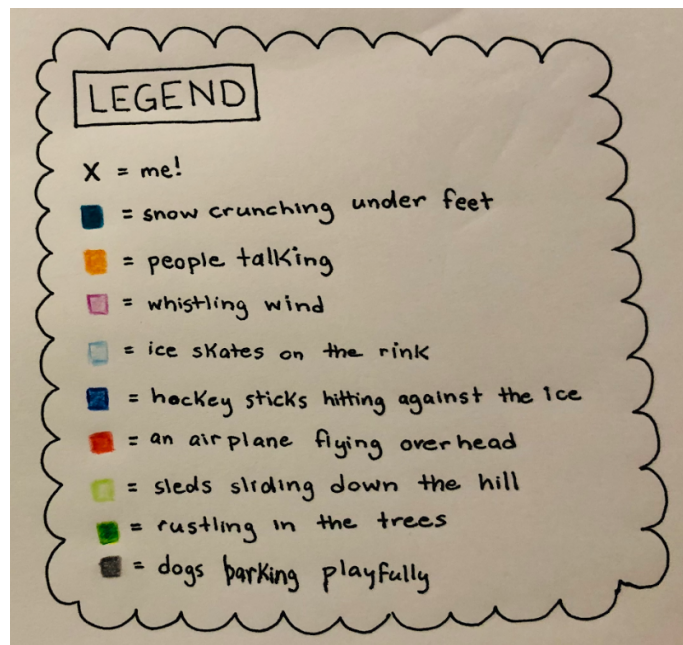 LEGEND
X = me!
= snow crunching under feet
= people talking
= whistling wind
= ice skates on the rink
= hockey sticks hitting against the ice
= an airplane flying overhead
= sleds sliding down the hill
= rustling in the trees
= dogs barking playfully